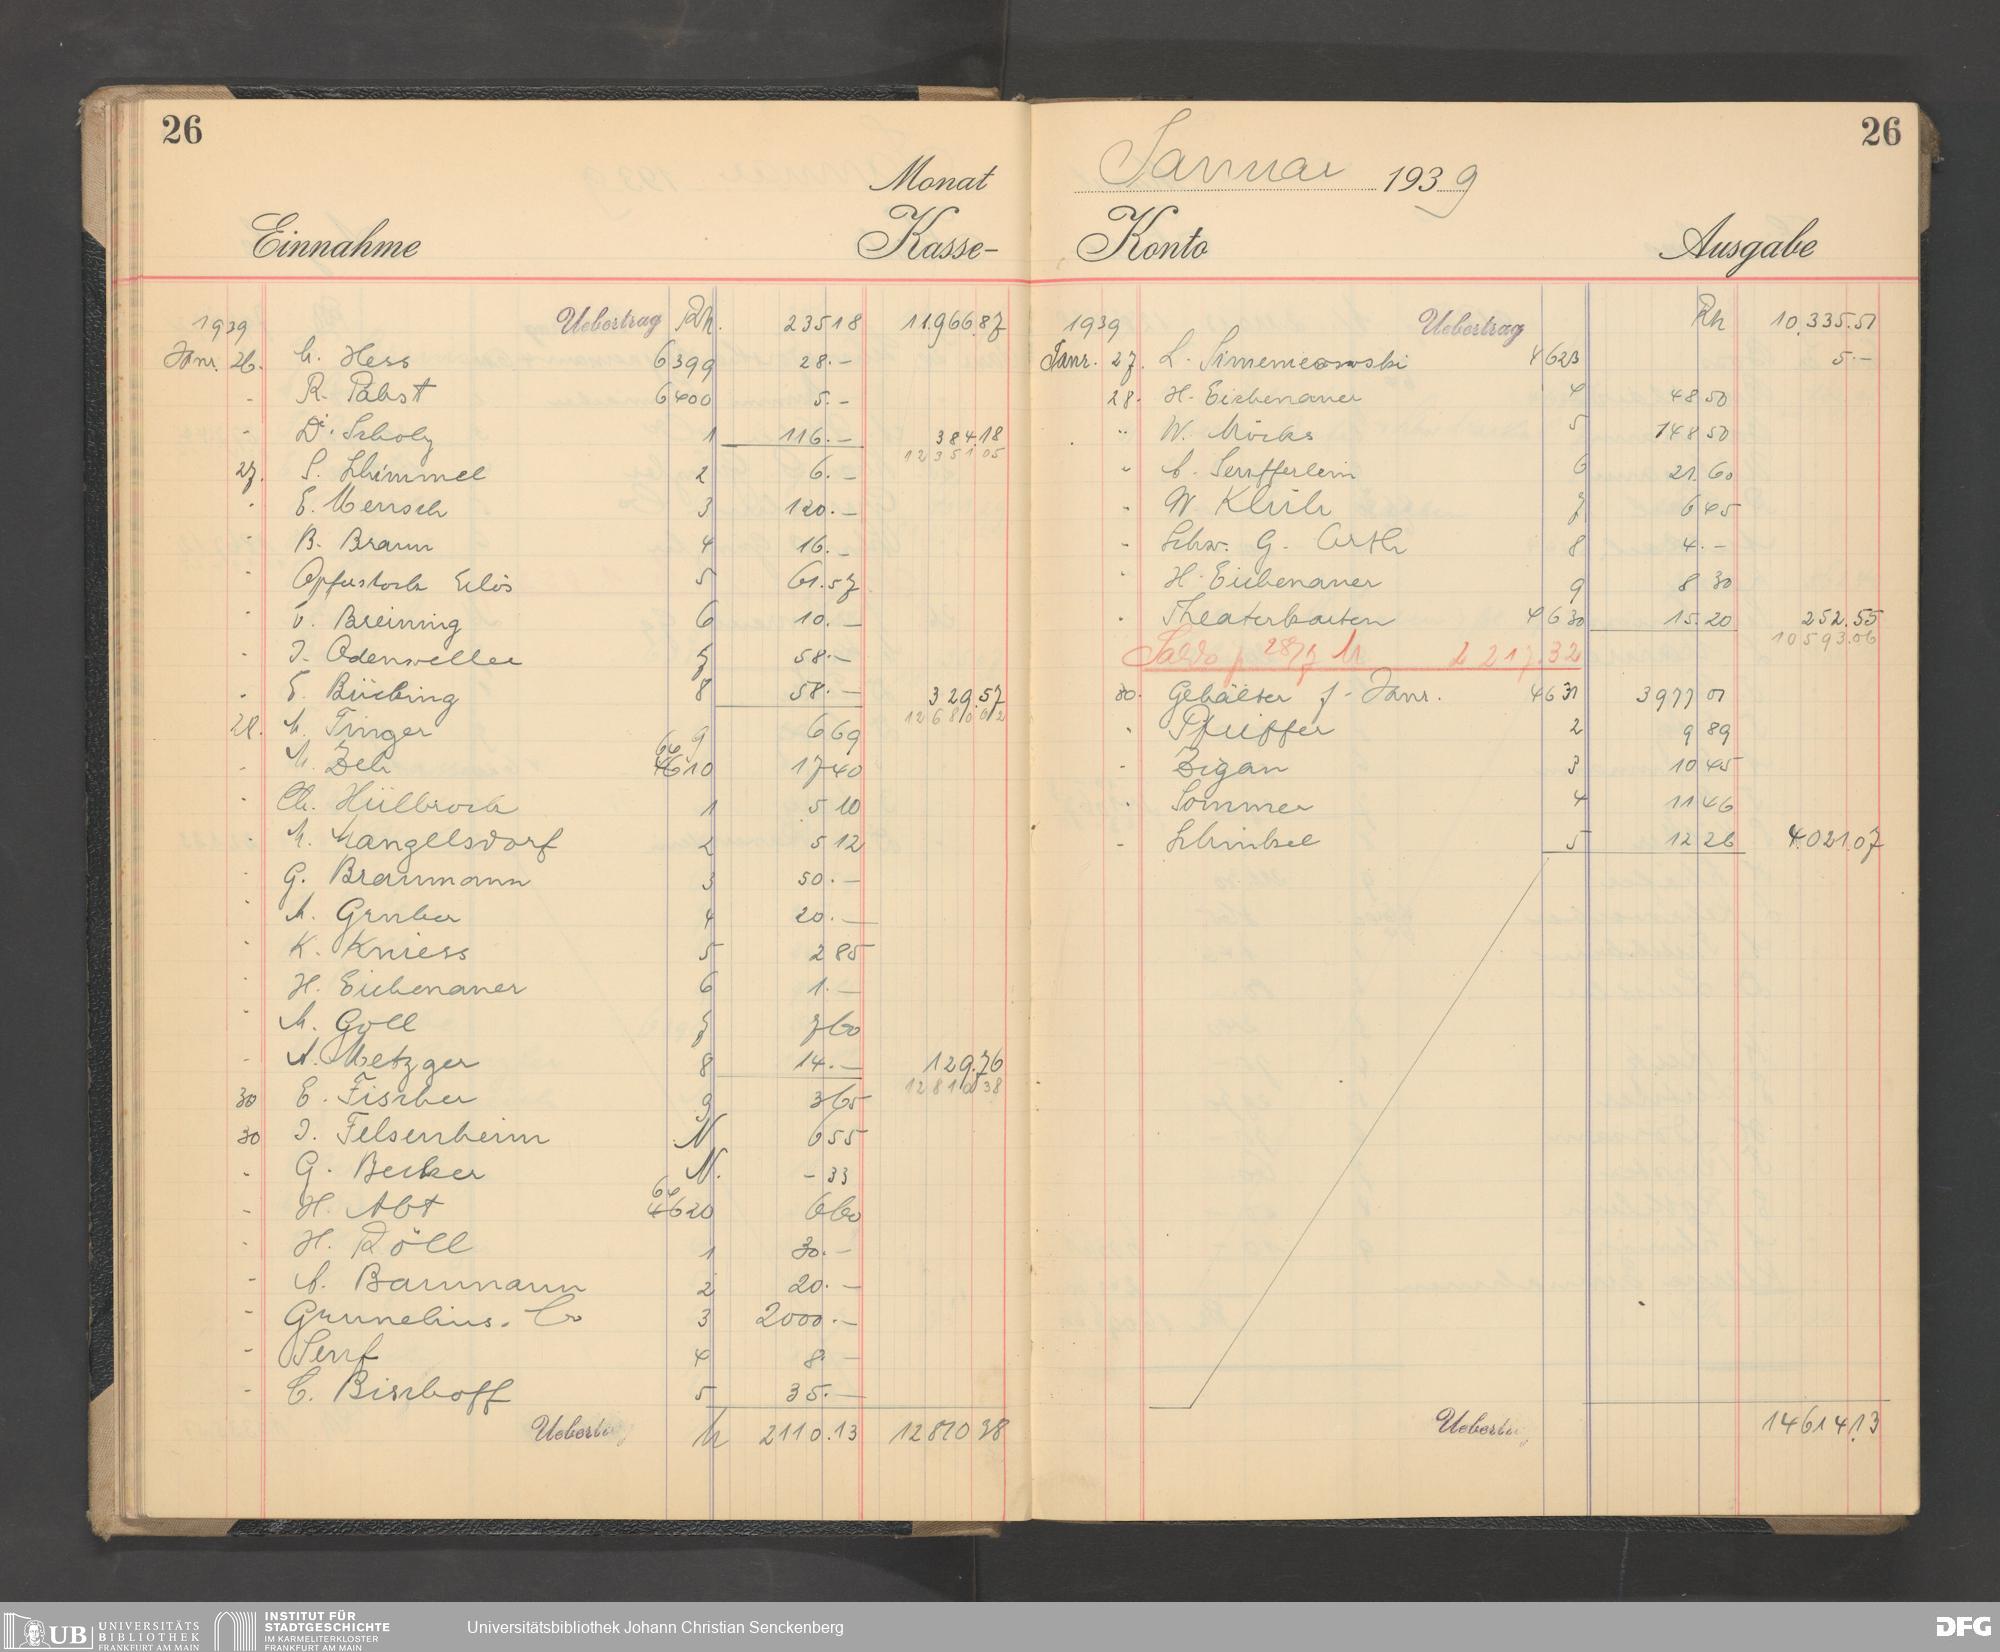 26
Monat
Einnahme Kasse-
1939 Uebertrag Rm. 235 18 11.966.87
Janr. 26. M. Hess 6399 28.-
- R. Pabst 6400 5.-
- Dr. Scholz 1 116.- 384.18
12 351 05
27. S. Schimmel 2 6.-
- E. Mensch 3 120.-
- B. Braun 4 16.-
- Opferstock Erlös 5 61.57
- v. Breining 6 10.-
- J. Odenweller 7 58.-
- E. Bücking 8 58.- 329.57
12 680 62
28. M. Finger 9 6 69
- M. Zeh 6410 17 40
- Ch. Hülbrock 1 5 10
- M. Mangelsdorf 2 5 12
- G. Braumann 3 50.-
- A. Gruber 4 20.-
- K. Kniess 5 2 85
- H. Eichenauer 6 1.-
- M. Goll 7 7 60
- A. Metzger 8 14.- 129.76
12 810 38
30 E. Fischer 9 3 65
30 J. Felsenheim N 6 55
- G. Becker N. - 33
- H. Abt 6420 6 60
- H. Röll 1 30.-
- A. Baumann 2 20.-
- Grunelius. Co 3 2000.-
- Senf 4 8.-
- C. Bischoff 5 35.-
Uebertrag M 2110.13 12810 38
26
Januar 1939
Konto Ausgabe
1939 Uebertrag Rm 10.335.51
Janr. 27. L. 4623 5.-
28. H. Eichenauer 4 48 50
- W. Möcks 5 148 50
- A. Senfferlein 6 21.60
- W. Klüh 7 6 45
- Schw. G. Orth 8 4.-
- H. Eichenauer 9 8 30
- Theaterkarten 4630 15.20 252.55
10 593.06
Saldo p 28/1 M 2 217.32
30. Gehälter f. Janr. 4631 3977 01
- Pfeiffer 2 9 89
- Zigan 3 10 45
- Sommer 4 11 46
- Schinkel 5 12 26 4.021.07
Uebertrag 14614.13
UB UNIVERSITÄTS
BIBLIOTHEK
FRANKFURT AM MAIN
INSTITUT FÜR
STADTGESCHICHTE
IM KARMELITERKLOSTER
FRANKFURT AM MAIN
Universitätsbibliothek Johann Christian Senckenberg
DFG